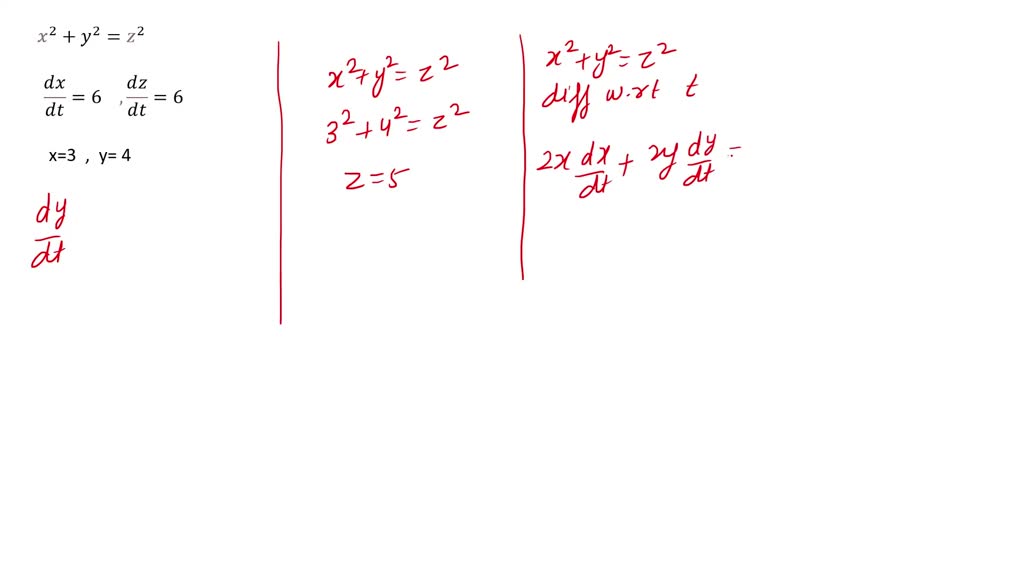 x² + y² = z²
dx/dt = 6 , dz/dt = 6
x=3 , y= 4
dy/dt
x² + y² = z²
3² + 4² = z²
z = 5
x² + y² = z²
diff w.r.t t
2x dx/dt + 2y dy/dt =